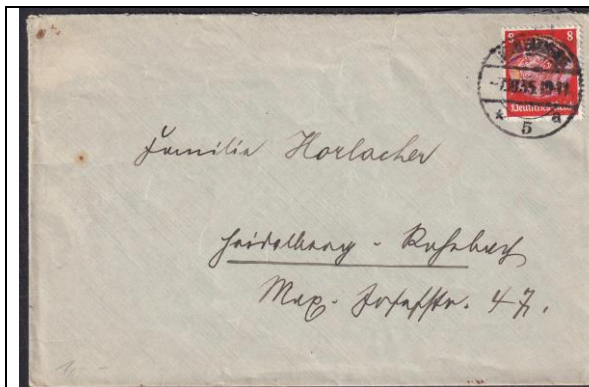 8 8
Deutsches
* 5 a
Familie Horlacher
Heidelberg - Rohrbach
Max-Josefstr. 47.